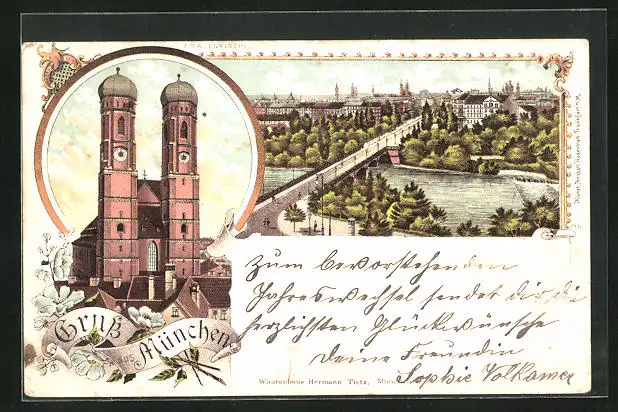 FRAUENKIRCHE
Gruß
aus
München
Zum bevorstehenden
Jahreswechsel sendet dir die
herzlichsten Glückwünsche
deine Freundin
Sophie Volkamer
Waarenhaus Hermann Tietz,